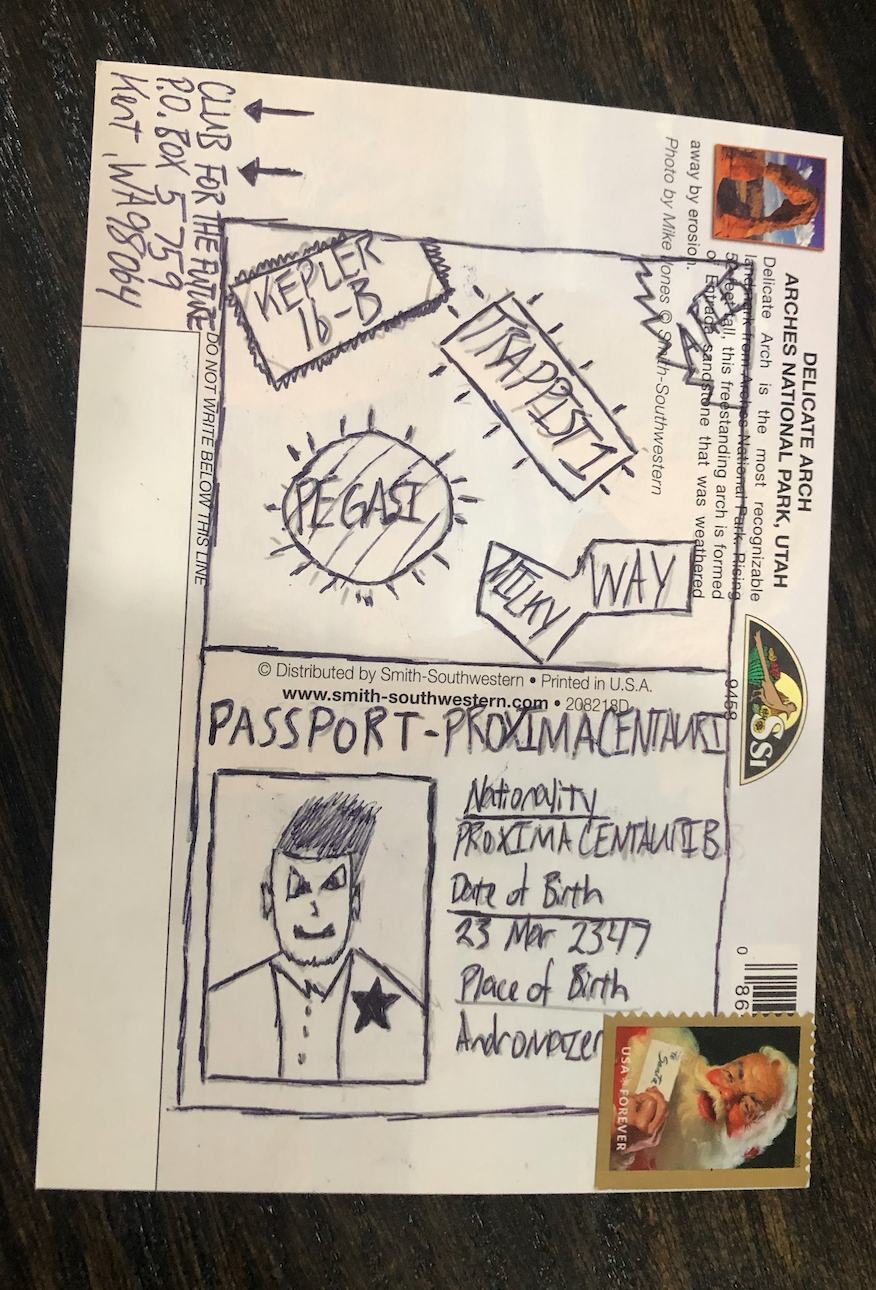 CLUB FOR THE FUTURE
P.O. BOX 5759
Kent, WA 98064
DO NOT WRITE BELOW THIS LINE
DELICATE ARCH
ARCHES NATIONAL PARK, UTAH
Delicate Arch is the most recognizable
landmark from Arches National Park. Rising
feet tall, this freestanding arch is formed
of Entrada sandstone that was weathered
away by erosion.
Photo by Mike Jones © Smith-Southwestern
KEPLER
16-B
TRAPPIST 1
PEGASI
MILKY WAY
© Distributed by Smith-Southwestern • Printed in U.S.A.
www.smith-southwestern.com • 208218D
9458
SSI
PASSPORT-PROXIMA CENTAURI
Nationality
PROXIMA CENTAURI B
Date of Birth
23 Mar 2347
Place of Birth
0 86
Santa
USA FOREVER